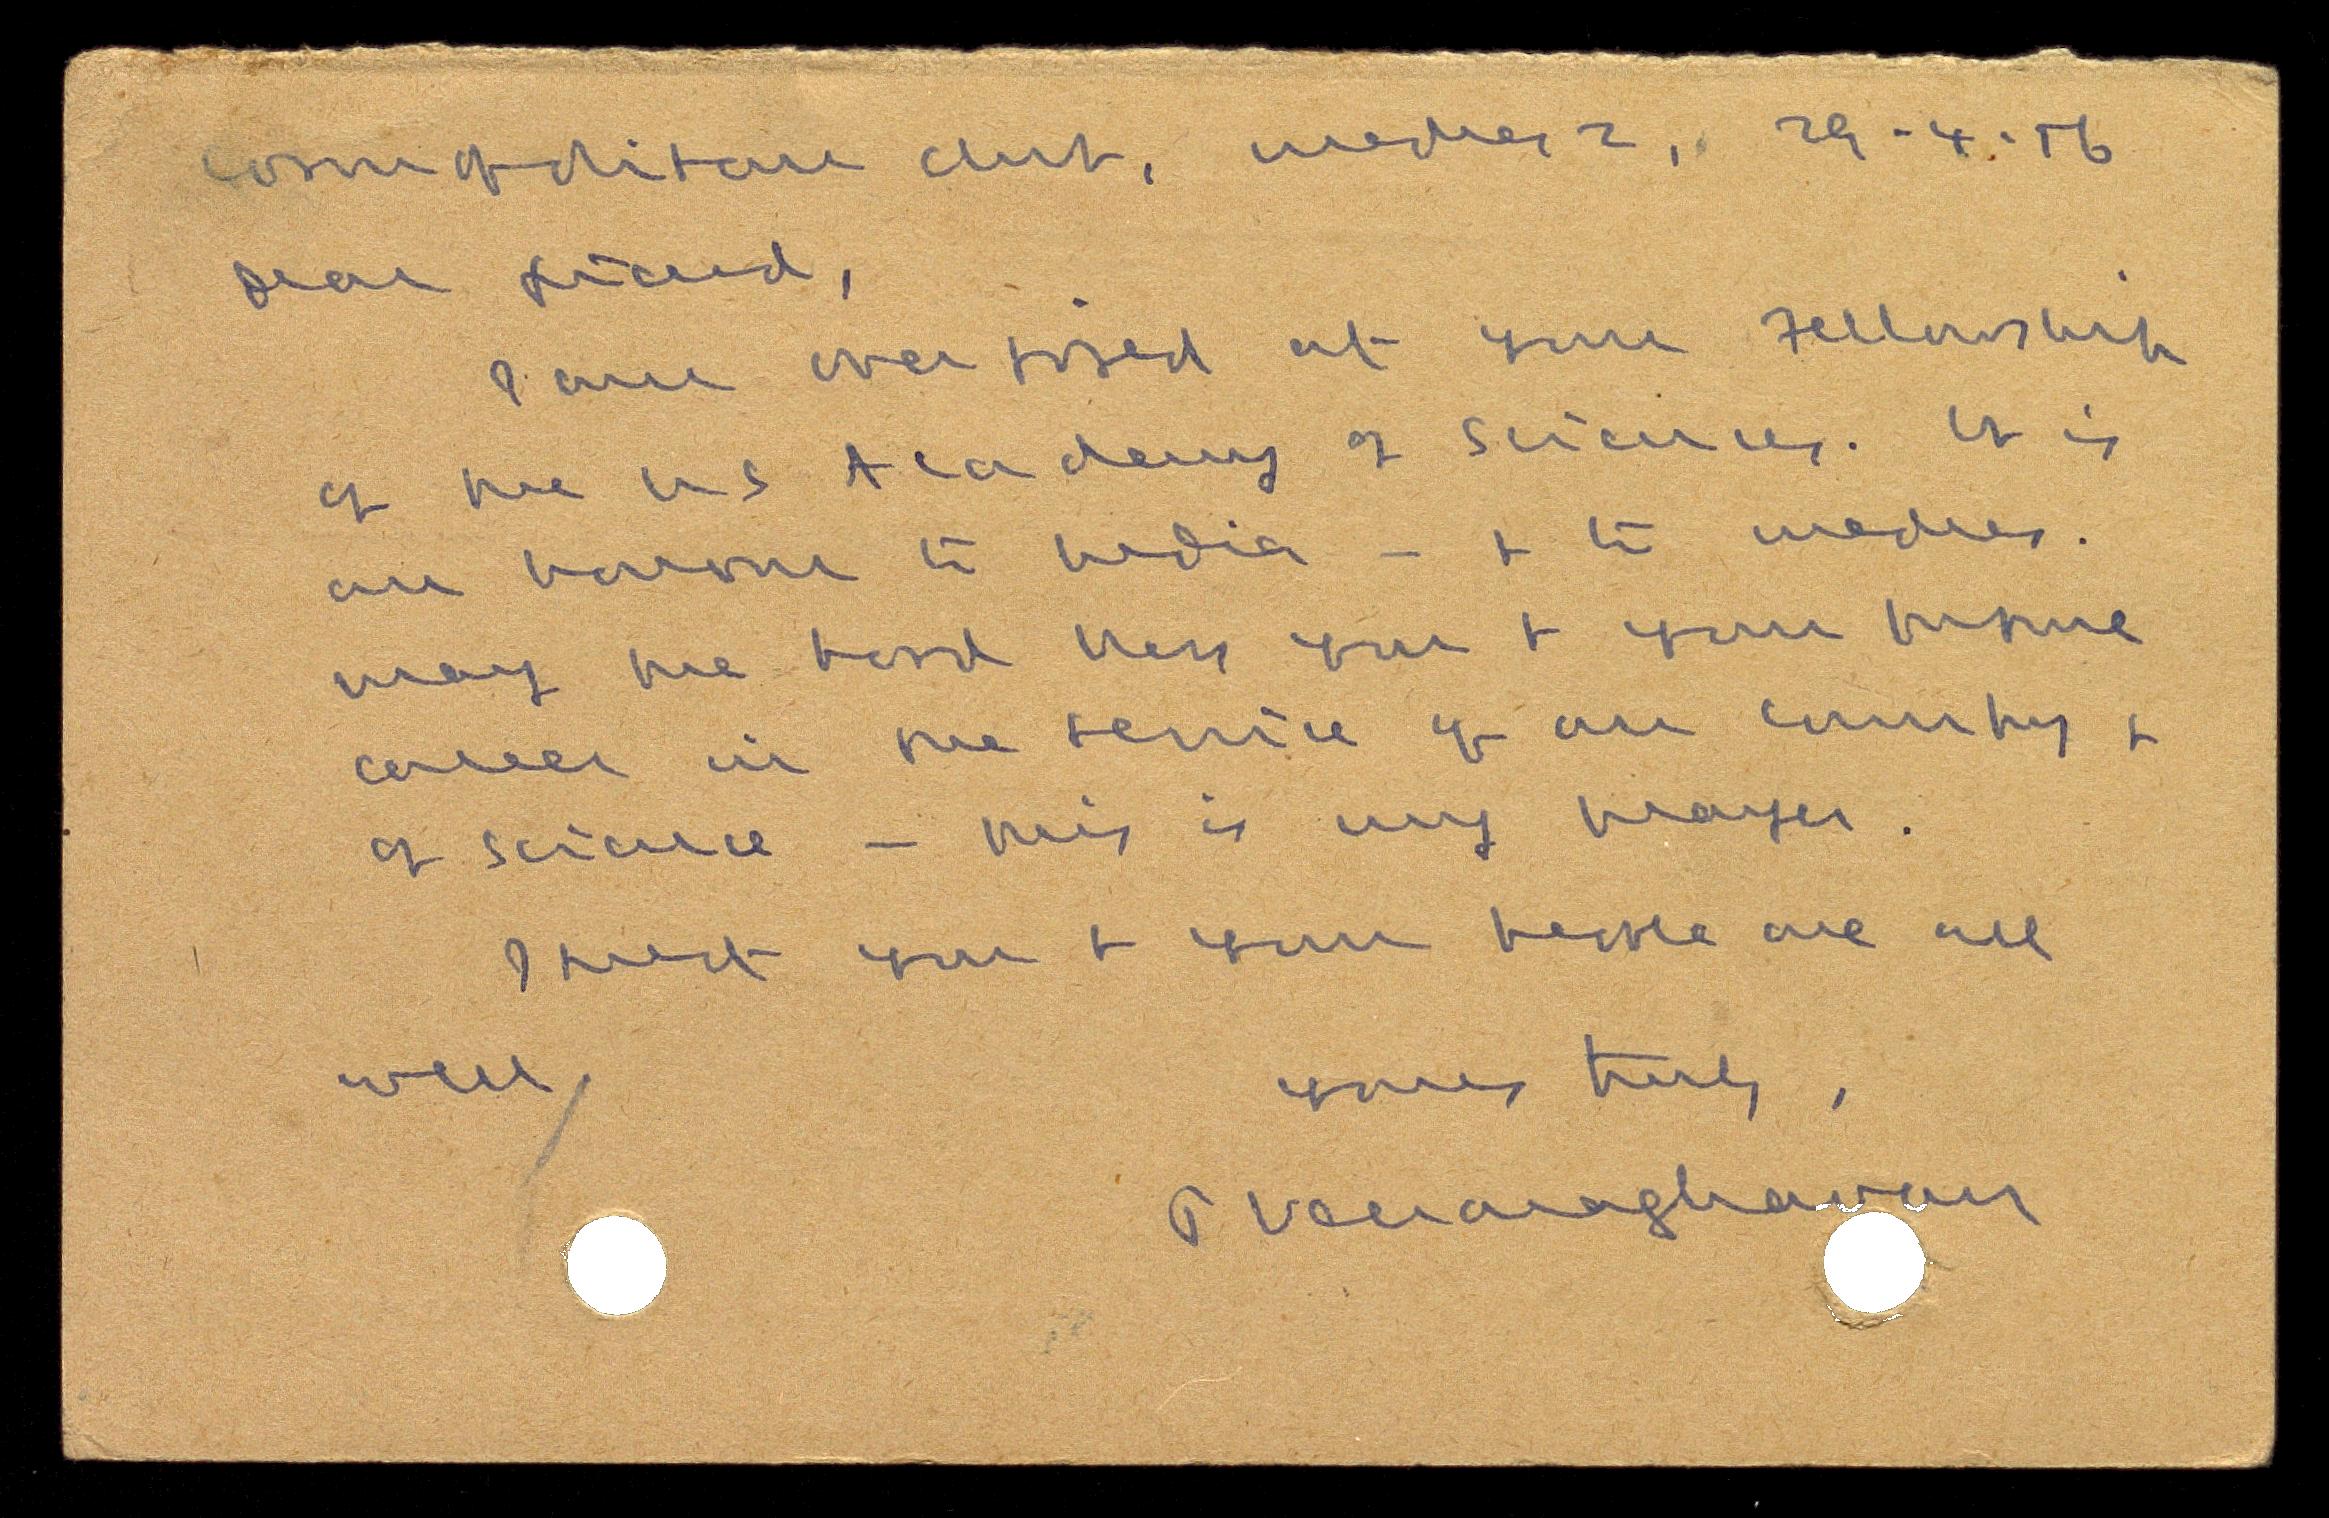 Cosmopolitan Club, Madras 2, 29-4-56
Dear friend,
I am overjoyed at your Fellowship
of the US Academy of Sciences. It is
an honour to India - & to Madras.
May the Lord bless you & your future
career in the service of our country &
of science - this is my prayer.
I trust you & your people are all
well/
yours truly,
T Veeraraghavan